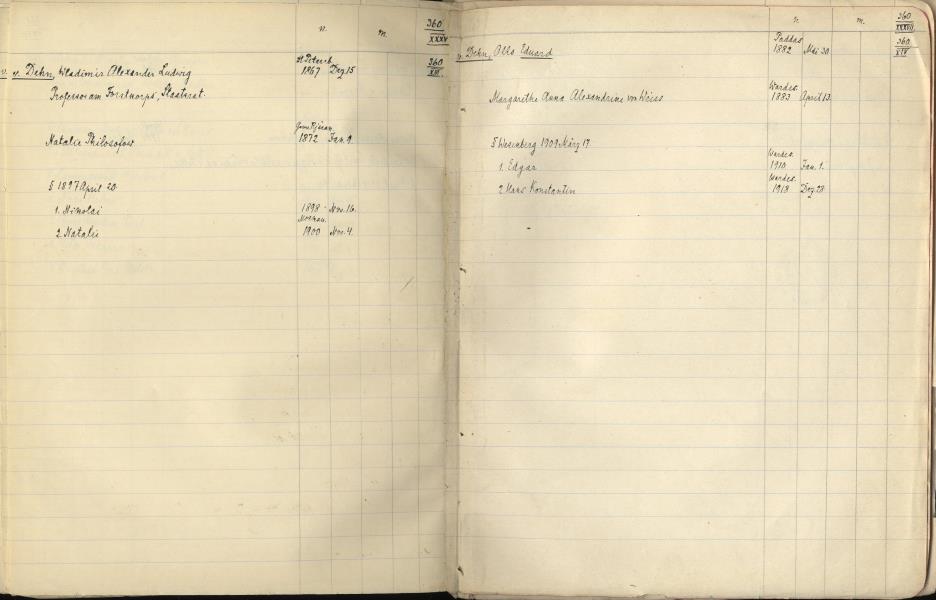 n. m. 360
XXXV
v. v. Dehn, Wladimir Alexander Ludwig St. Petersb. 1867 Dez. 15 360
XIII
Professor am Forstkorps, Staatsrat.
Natalie Philosofow 1872 Jan. 9.
§ 1897 April 20
1. Nikolai 1898 Nov. 16.
Moskau.
2 Natalie 1900 Nov. 4.
n. m. 360
XXXVII
v. Dehn, Otto Eduard Paddas 1882 Mai 30 360
XIV
Margarethe Anna Alexandrine von Weiss Wardes. 1883 April 13.
§ Wesenberg 1909 März 17
Wardes.
1. Edgar 1910 Jan. 1.
Wardes.
2 Hans Konstantin 1913 Dez 28